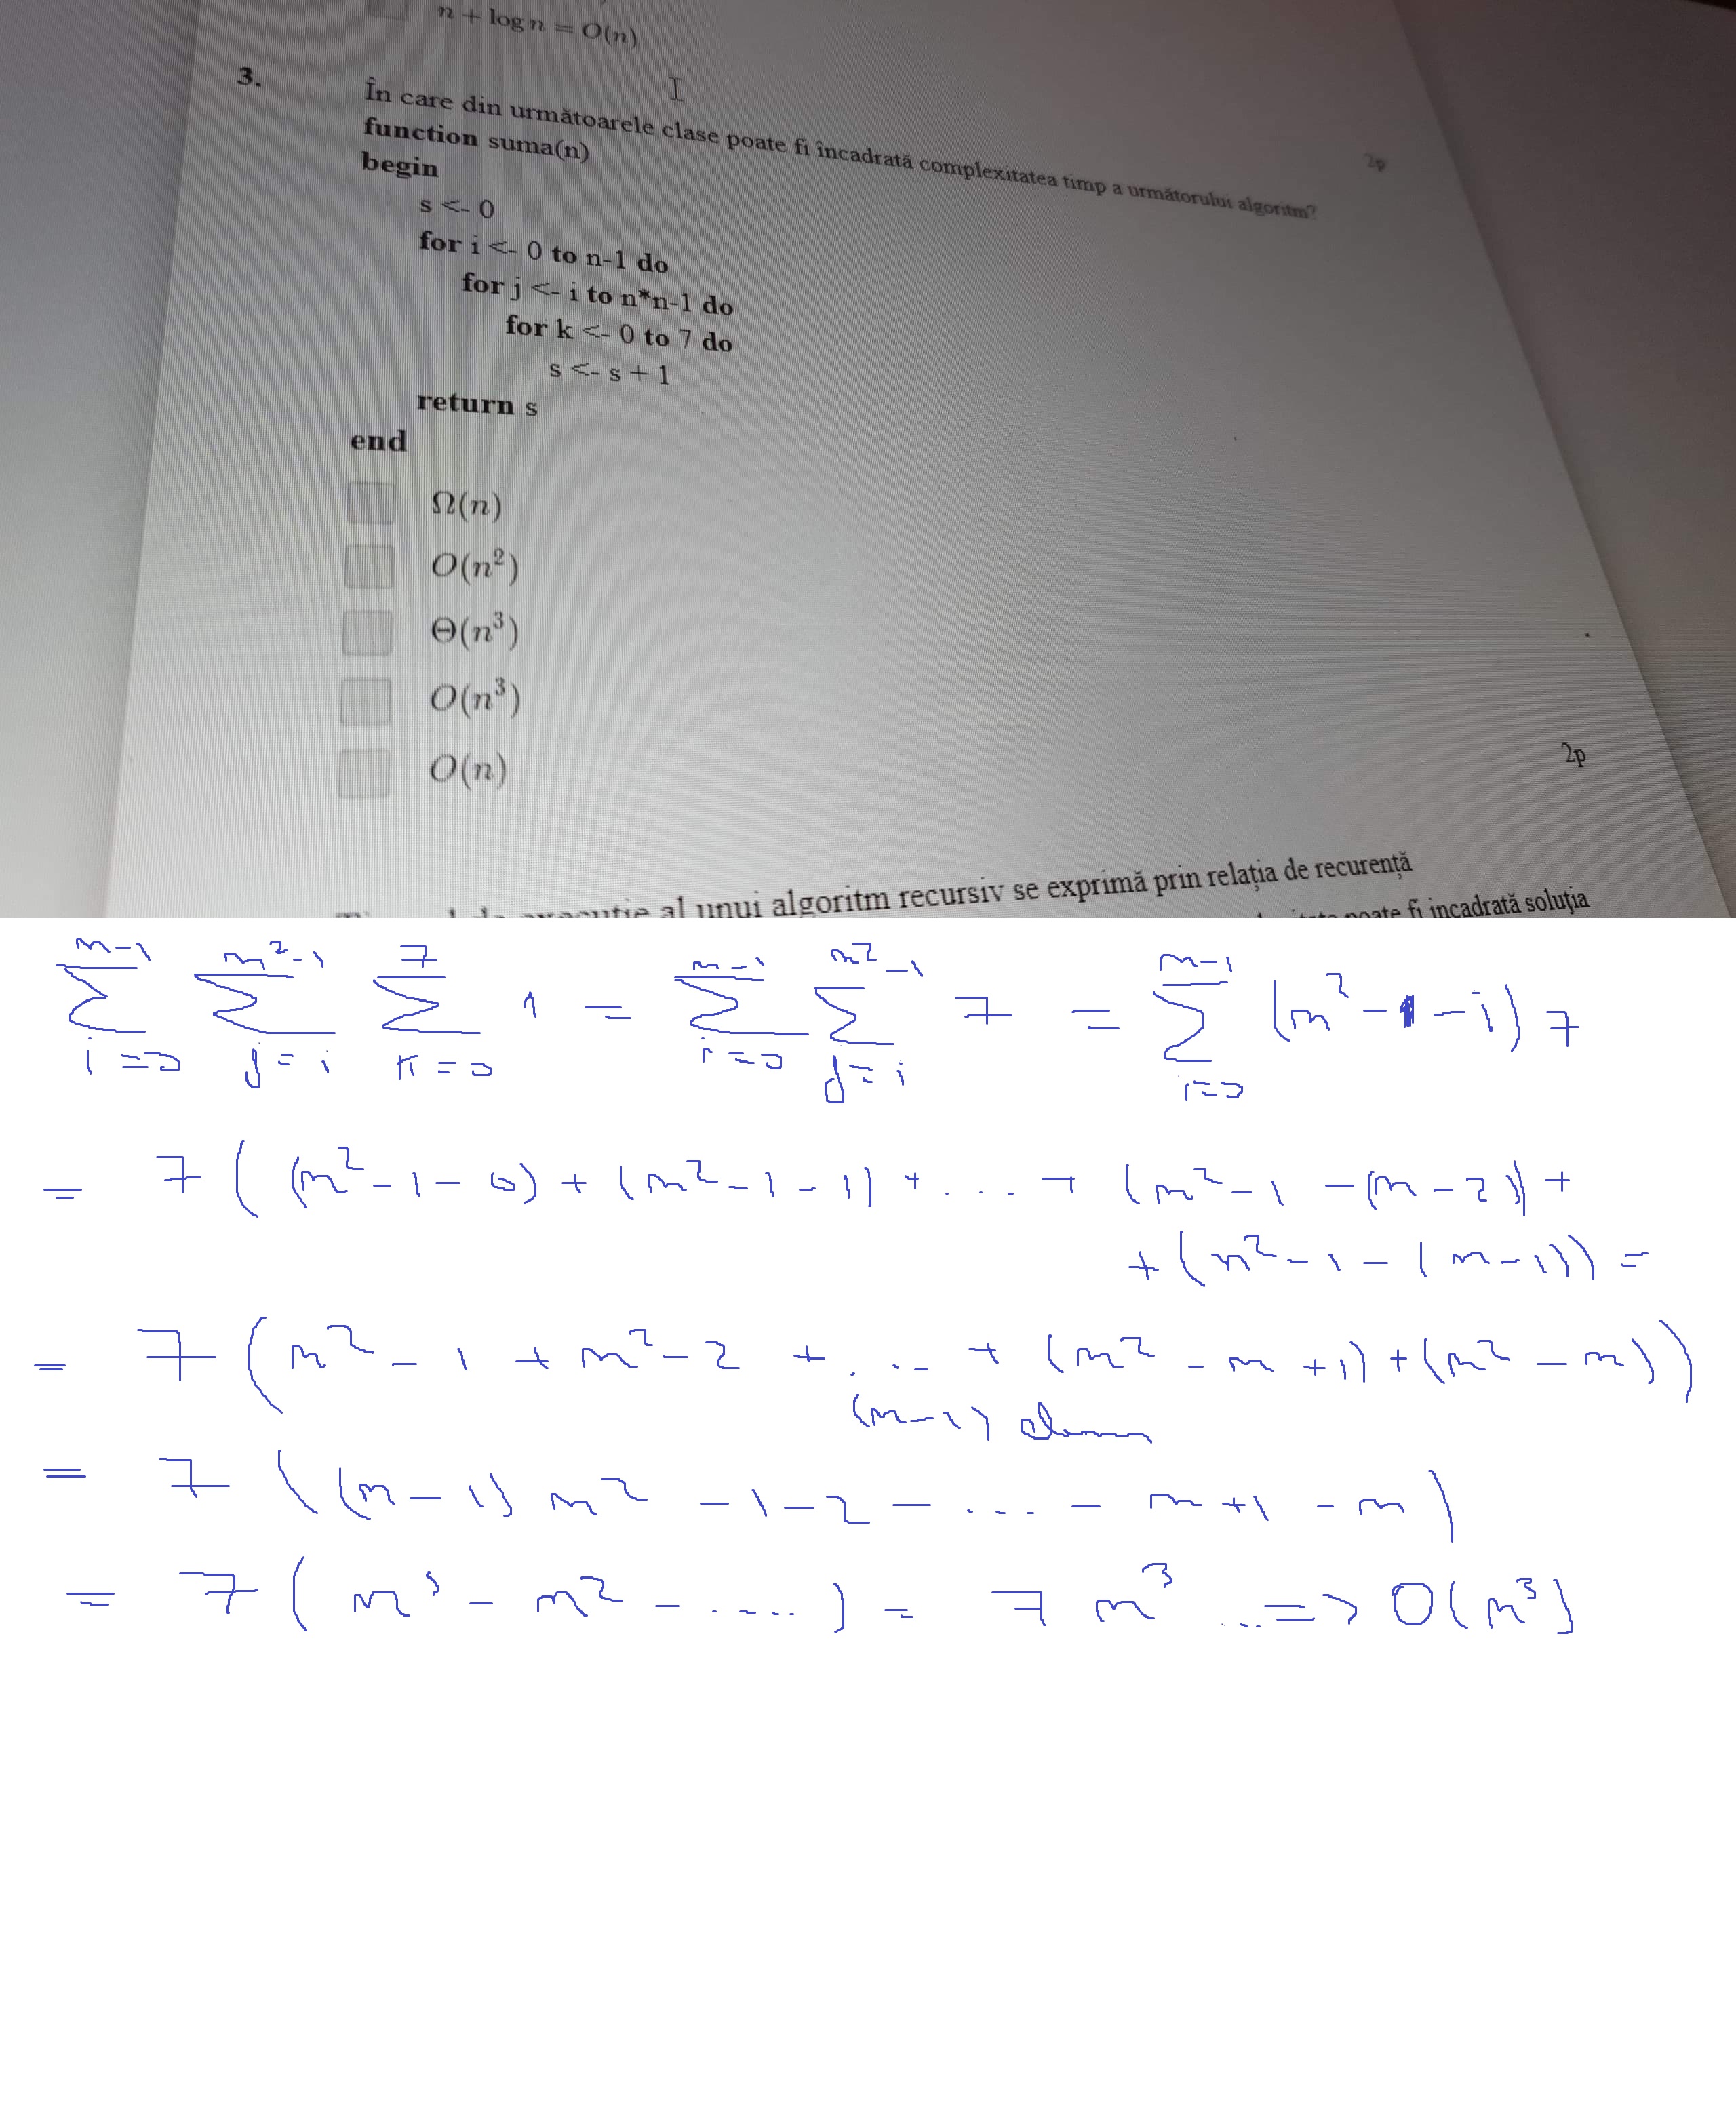 n + log n = O(n)
3.
2p
În care din următoarele clase poate fi încadrată complexitatea timp a următorului algoritm?
function suma(n)
begin
s <- 0
for i <- 0 to n-1 do
for j <- i to n*n-1 do
for k <- 0 to 7 do
s <- s + 1
return s
end
Ω(n)
O(n²)
Θ(n³)
O(n³)
O(n)
2p
al unui algoritm recursiv se exprimă prin relația de recurență
poate fi incadrată soluția
n-1 n²-1 7 n-1 n²-1 n-1
∑ ∑ ∑ 1 = ∑ ∑ 7 = ∑ (n²-1-i) 7
i=0 j=i k=0 i=0 j=i i=0
= 7 ( (n²-1-0) + (n²-1-1) + ... + (n²-1-(n-2)) +
+ (n²-1-(n-1)) =
= 7 ( n²-1 + n²-2 + ... + (n²-n+1) + (n²-n) )
(n-1) elem
= 7 ( (n-1) n² -1-2- ... - n+1 - n )
= 7 ( n³ - n² - ..... ) = 7 n³ ... => O(n³)